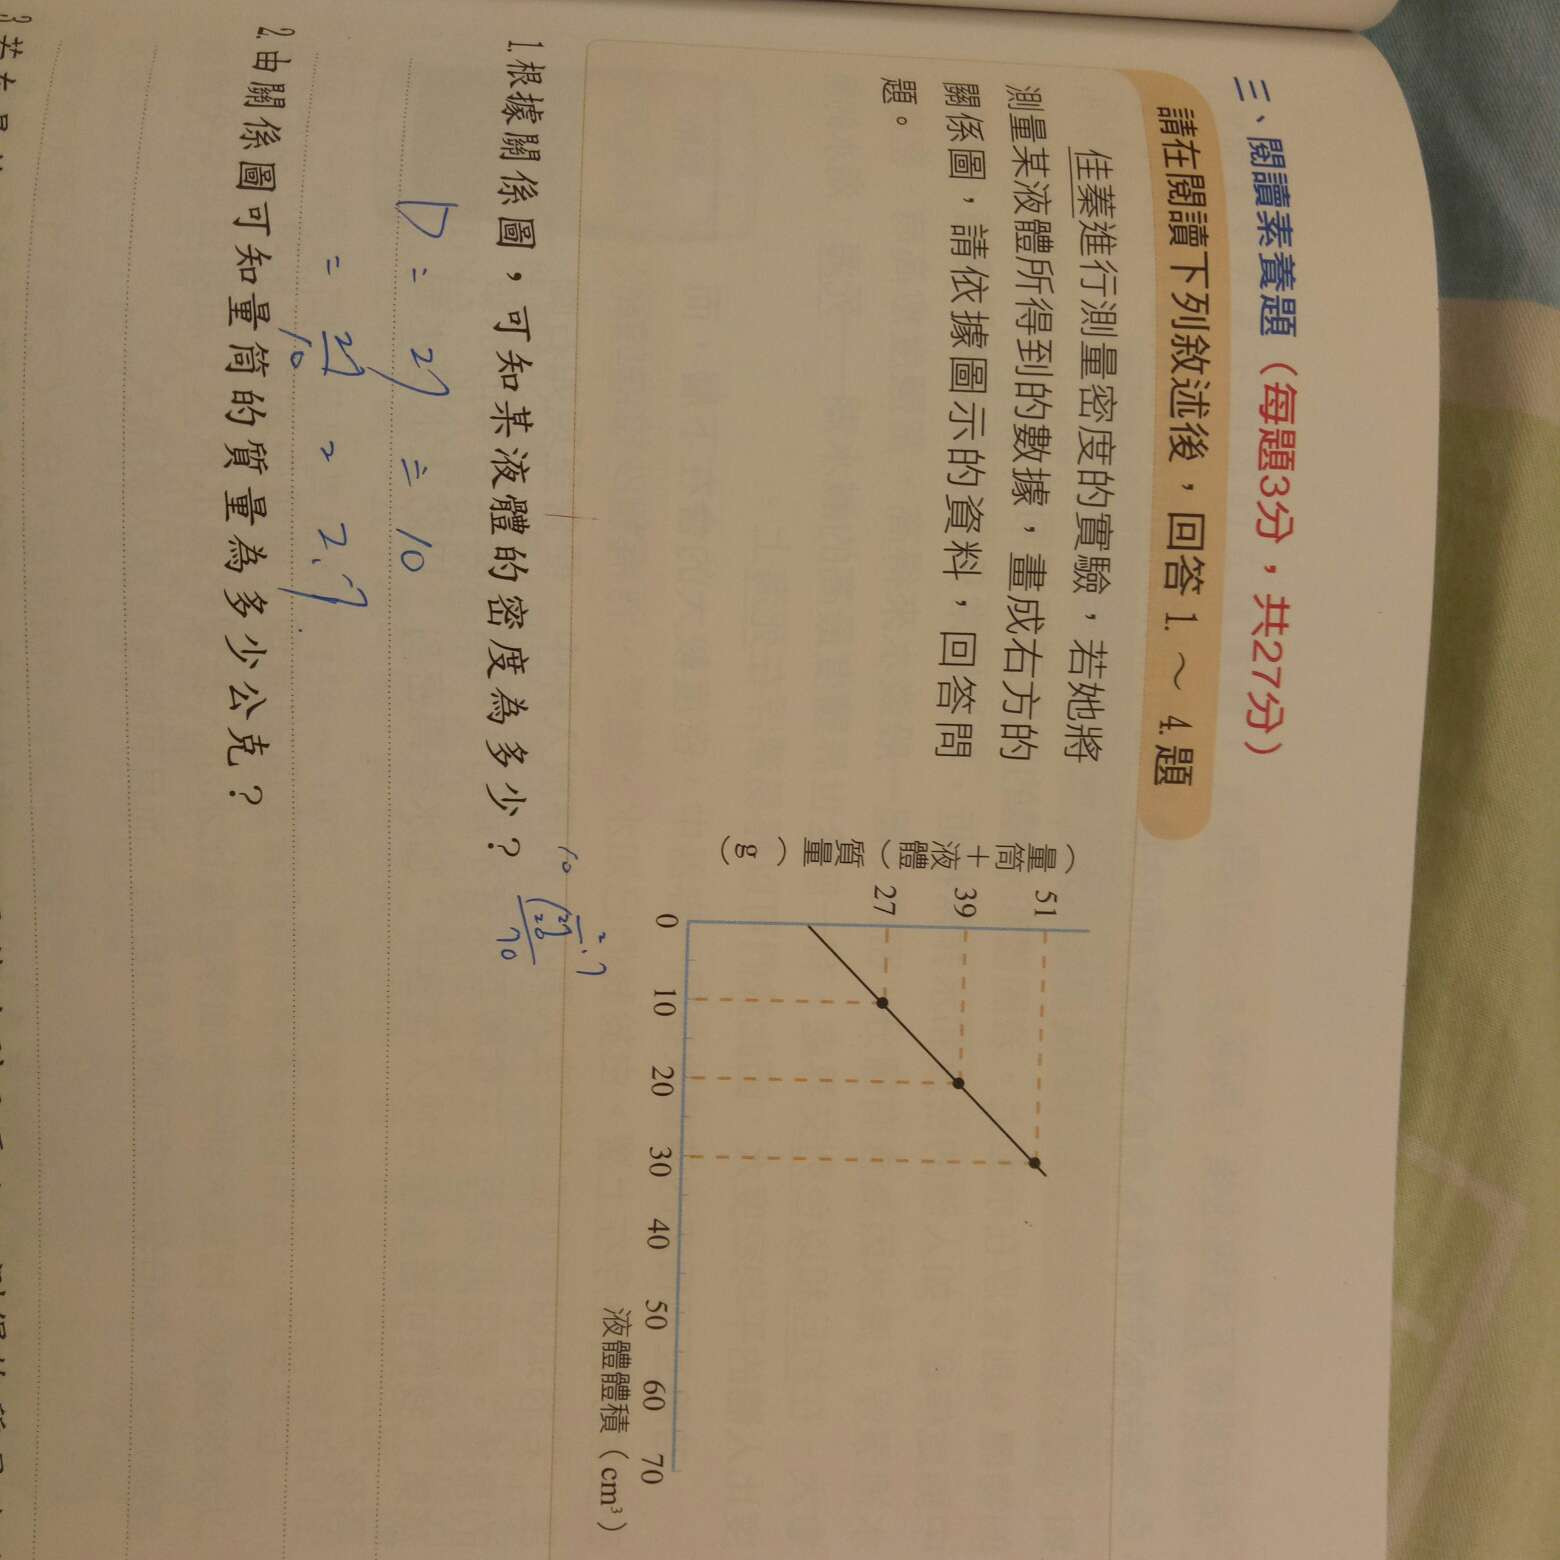 三、閱讀素養題（每題3分，共27分）
請在閱讀下列敘述後，回答 1. ～ 4. 題
佳蓁進行測量密度的實驗，若她將
測量某液體所得到的數據，畫成右方的
關係圖，請依據圖示的資料，回答問
題。
（量筒＋液體）質量（g）
51
39
27
0 10 20 30 40 50 60 70
液體體積（cm³）
1. 根據關係圖，可知某液體的密度為多少？
D = 27 ÷ 10
= 27/10 = 2.7
2.7
10
27
20
70
2. 由關係圖可知量筒的質量為多少公克？